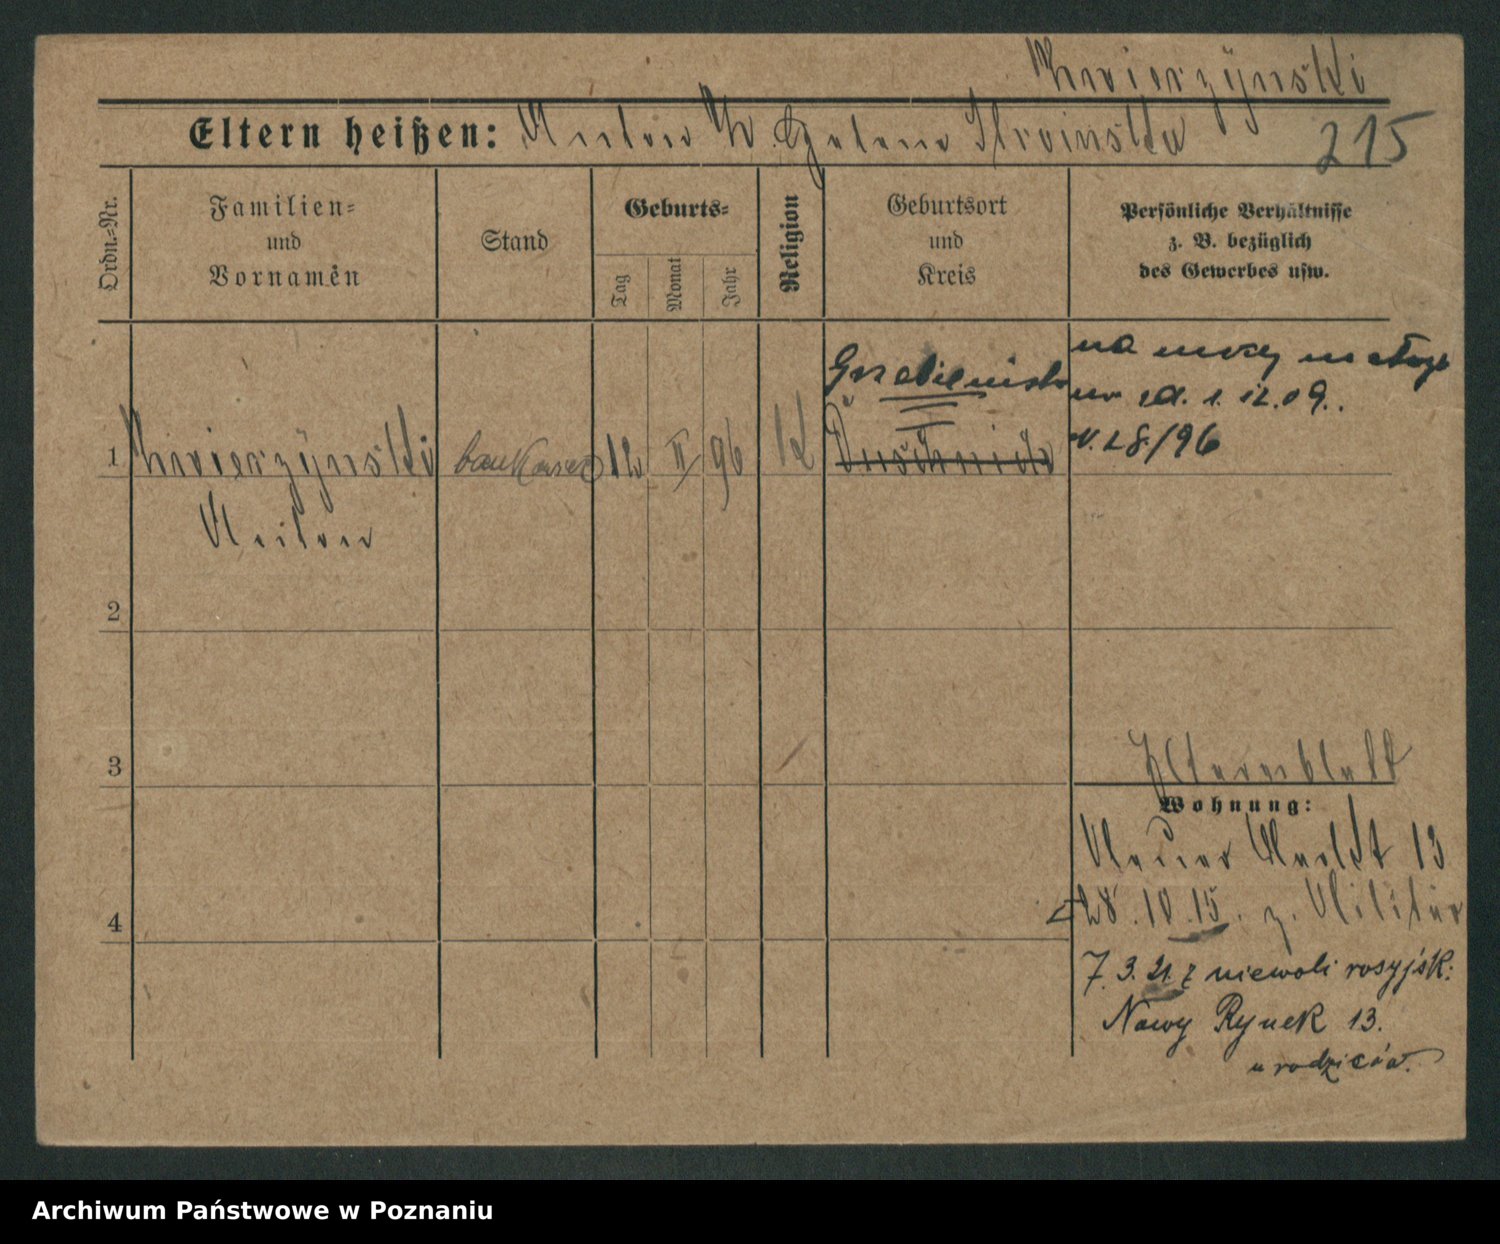 Zwierzynski
Eltern heißen: Anton Zw. Helene Stroinska
215
Ordn.=Nr.
Familien=
und
Vornamen
Stand
Geburts=
Tag
Monat
Jahr
Religion
Geburtsort
und
Kreis
Persönliche Verhältnisse
z. B. bezüglich
des Gewerbes usw.
1
Zwierzynski
Anton
12 II 96
K
Grzebienisko
Duschnik
na mocy metryki
1. 12. 09.
N. 28/96
2
3
4
Elternblatt
Wohnung:
Neuer Markt 13
28.10.15. z. Militär
7.3.21. z niewoli rosyjsk:
Nowy Rynek 13.
u rodziców.
Archiwum Państwowe w Poznaniu